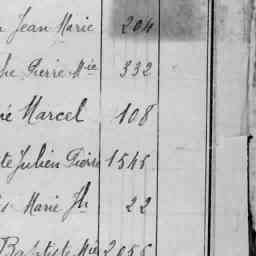 Jean Marie 204
Pierre Mie 332
Marcel 108
te Julien Pierre 1545
Marie Jh 22
Baptiste Mie 2055